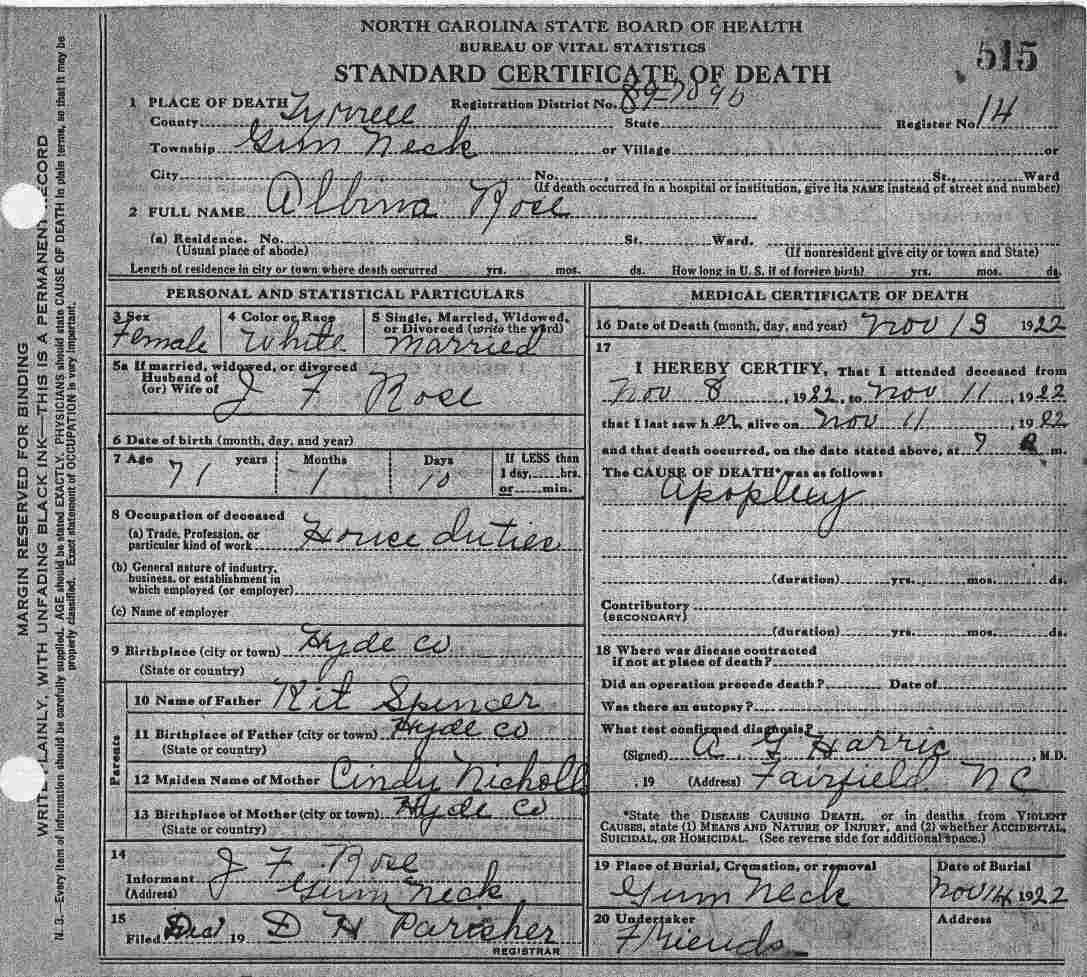 NORTH CAROLINA STATE BOARD OF HEALTH
BUREAU OF VITAL STATISTICS
STANDARD CERTIFICATE OF DEATH
515
1 PLACE OF DEATH Registration District No. 89-7090
County Tyrrell State Register No 14
Township Gum Neck or Village or
City No. , St., Ward
(If death occurred in a hospital or institution, give its NAME instead of street and number)
2 FULL NAME Albina Rose
(a) Residence. No. St. Ward.
(Usual place of abode) (If nonresident give city or town and State)
Length of residence in city or town where death occurred yrs. mos. ds. How long in U. S. if of foreign birth? yrs. mos. ds.
PERSONAL AND STATISTICAL PARTICULARS
3 Sex 4 Color or Race 5 Single, Married, Widowed,
or Divorced (write the word)
Female White Married
5a If married, widowed, or divorced
Husband of
(or) Wife of J F Rose
6 Date of birth (month, day, and year)
7 Age years Months Days If LESS than
1 day, hrs.
or min.
71 1 10
8 Occupation of deceased
(a) Trade, Profession, or
particular kind of work House duties
(b) General nature of industry,
business, or establishment in
which employed (or employer)
(c) Name of employer
9 Birthplace (city or town) Hyde Co
(State or country)
Parents
10 Name of Father Kit Spencer
11 Birthplace of Father (city or town) Hyde Co
(State or country)
12 Maiden Name of Mother Cindy Nicholl
13 Birthplace of Mother (city or town) Hyde Co
(State or country)
14
Informant J F Rose
(Address) Gum Neck
15
Filed 19 D H Parisher
REGISTRAR
MEDICAL CERTIFICATE OF DEATH
16 Date of Death (month, day, and year) Nov 13 1922
17
I HEREBY CERTIFY, That I attended deceased from
Nov 8, 1922, to Nov 11, 1922
that I last saw her alive on Nov 11, 1922
and that death occurred, on the date stated above, at 7 m.
The CAUSE OF DEATH* was as follows:
Apoplley
(duration) yrs. mos. ds.
Contributory
(SECONDARY)
(duration) yrs. mos. ds.
18 Where was disease contracted
if not at place of death?
Did an operation precede death? Date of
Was there an autopsy?
What test confirmed diagnosis?
(Signed) A. G Harris, M.D.
, 19 (Address) Fairfield NC
*State the DISEASE CAUSING DEATH, or in deaths from VIOLENT
CAUSES, state (1) MEANS AND NATURE OF INJURY, and (2) whether ACCIDENTAL,
SUICIDAL, OR HOMICIDAL. (See reverse side for additional space.)
19 Place of Burial, Cremation, or removal Date of Burial
Gum Neck Nov 14 1922
20 Undertaker Address
Friends
MARGIN RESERVED FOR BINDING
WRITE PLAINLY, WITH UNFADING BLACK INK—THIS IS A PERMANENT RECORD
N. B.—Every item of information should be carefully supplied. AGE should be stated EXACTLY. PHYSICIANS should state CAUSE OF DEATH in plain terms, so that it may be
properly classified. Exact statement of OCCUPATION is very important.